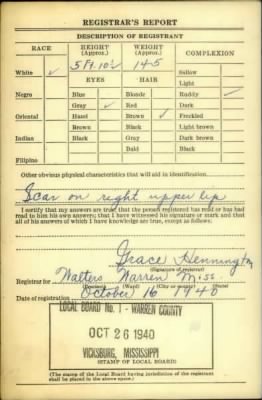 REGISTRAR'S REPORT
DESCRIPTION OF REGISTRANT
RACE HEIGHT (Approx.) WEIGHT (Approx.) COMPLEXION
White ✓ 5 Ft. 10½ 145 Sallow
EYES HAIR Light
Negro Blue Blonde Ruddy ✓
Gray ✓ Red Dark
Oriental Hazel Brown ✓ Freckled
Brown Black Light brown
Indian Black Gray Dark brown
Bald Black
Filipino
Other obvious physical characteristics that will aid in identification
Scar on right upper lip
I certify that my answers are true; that the person registered has read or has had
read to him his own answers; that I have witnessed his signature or mark and that
all of his answers of which I have knowledge are true, except as follows:
Grace Hennington
(Signature of registrar)
Registrar for Walters Warren Miss.
(Precinct) (Ward) (City or county) (State)
Date of registration October 16 1940
LOCAL BOARD No. 1 - WARREN COUNTY
OCT 26 1940
VICKSBURG, MISSISSIPPI
(STAMP OF LOCAL BOARD)
(The stamp of the Local Board having jurisdiction of the registrant
shall be placed in the above space.)